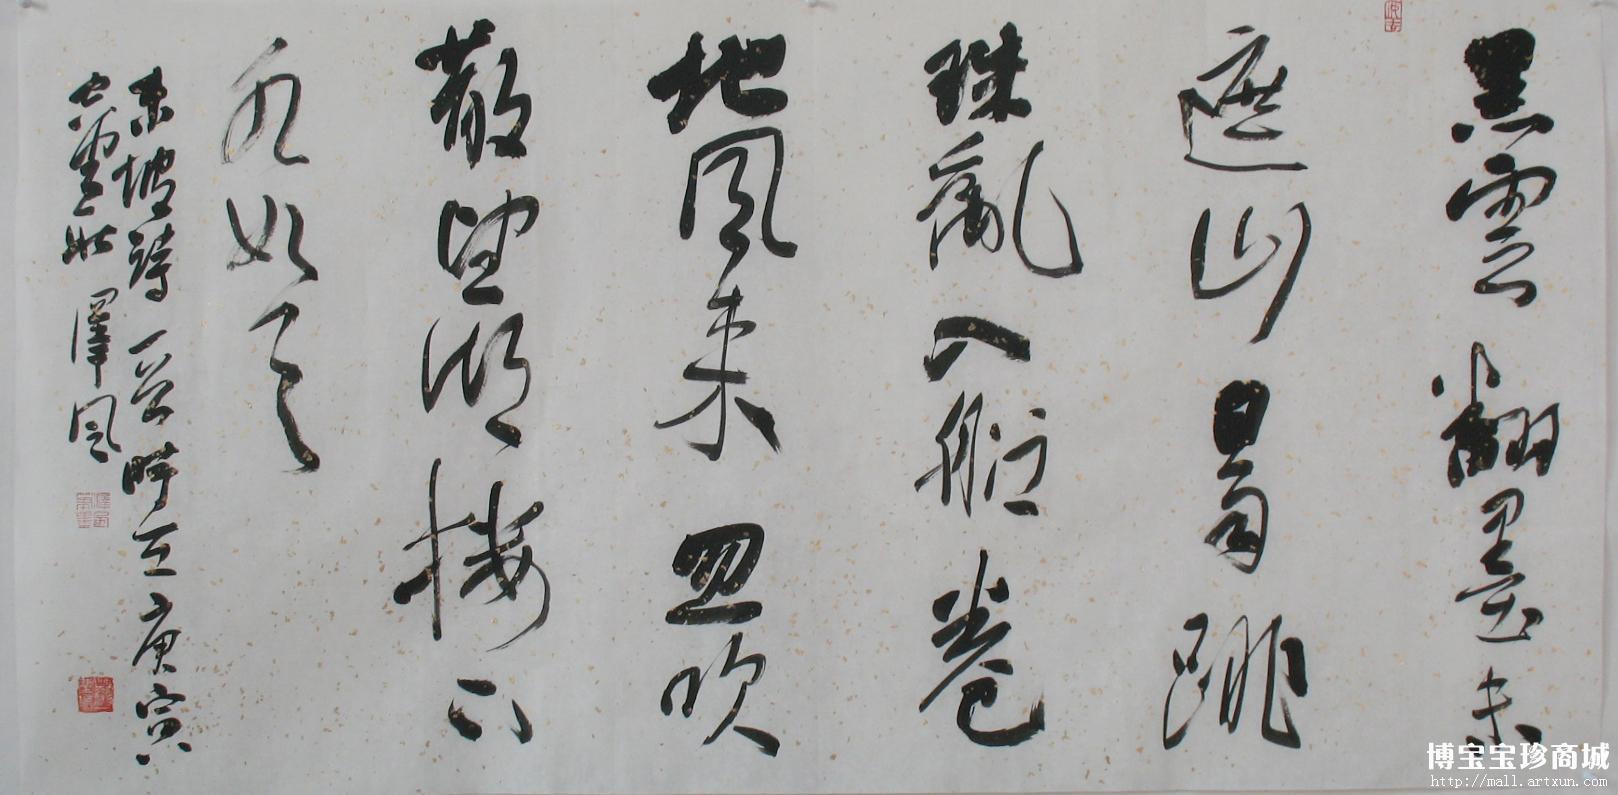 黑雲翻墨未
遮山白雨跳
珠亂入船卷
地風來忽吹
散望湖樓下
水如天
東坡詩一首時在庚寅
澤風
博宝宝珍商城
http://mall.artxun.com